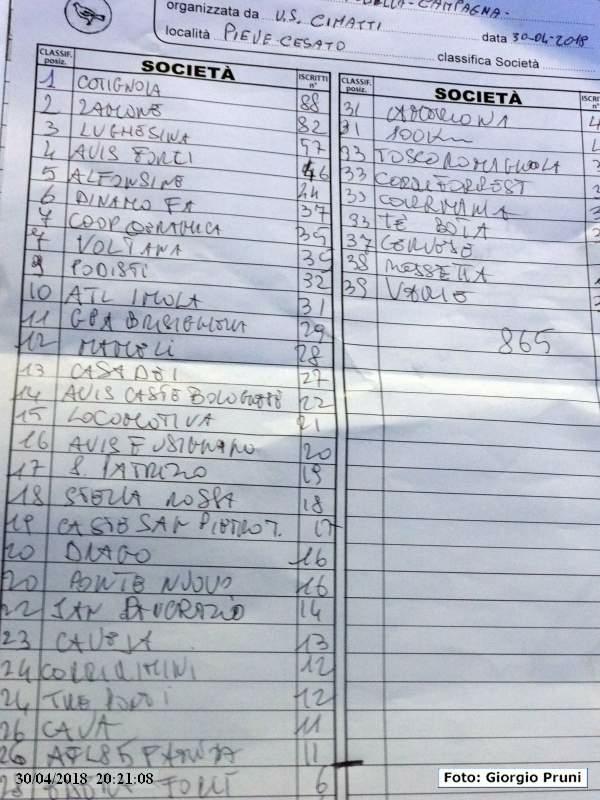 DELLA - CAMPAGNA -
organizzata da U.S. CIMATTI
data 30-04-2018
località PIEVE CESATO
classifica Società
CLASSIF. posiz. SOCIETÀ ISCRITTI n°
1 COTIGNOLA 88
2 ZANNONE 82
3 LUGHESINA 57
4 AVIS FORLI 46
5 ALFONSINE 44
6 DINAMO FA 37
7 COOP CERAMICA 35
7 VOLTANA 35
9 PODISTI 32
10 ATL IMOLA 31
11 GPA BRISIGHELLA 29
12 MAMELI 28
13 CASADEI 27
14 AVIS CASTEL BOLOGNESE 22
15 LOCOMOTIVA 21
16 AVIS FUSIGNANO 20
17 S. PATRIZIO 19
18 STELLA ROSSA 18
19 CASTEL SAN PIETRO T. 17
20 DRAGO 16
20 PONTE NUOVO 16
22 SAN PANCRAZIO 14
23 CAVEJA 13
24 CORRIRIMINI 12
24 TRE PONTI 12
26 CAVA 11
26 ATL 85 FAENZA 11
28 FORLI 6
CLASSIF. posiz. SOCIETÀ ISCRI n°
31 4
31 100 Km 4
33 TOSCO ROMAGNOLA 3
33 CORRIFORREST 3
33 3
33 TE BOTA
37 CERVESE
38 MASSETTA
39 VARIE
865
30/04/2018 20:21:08
Foto: Giorgio Pruni